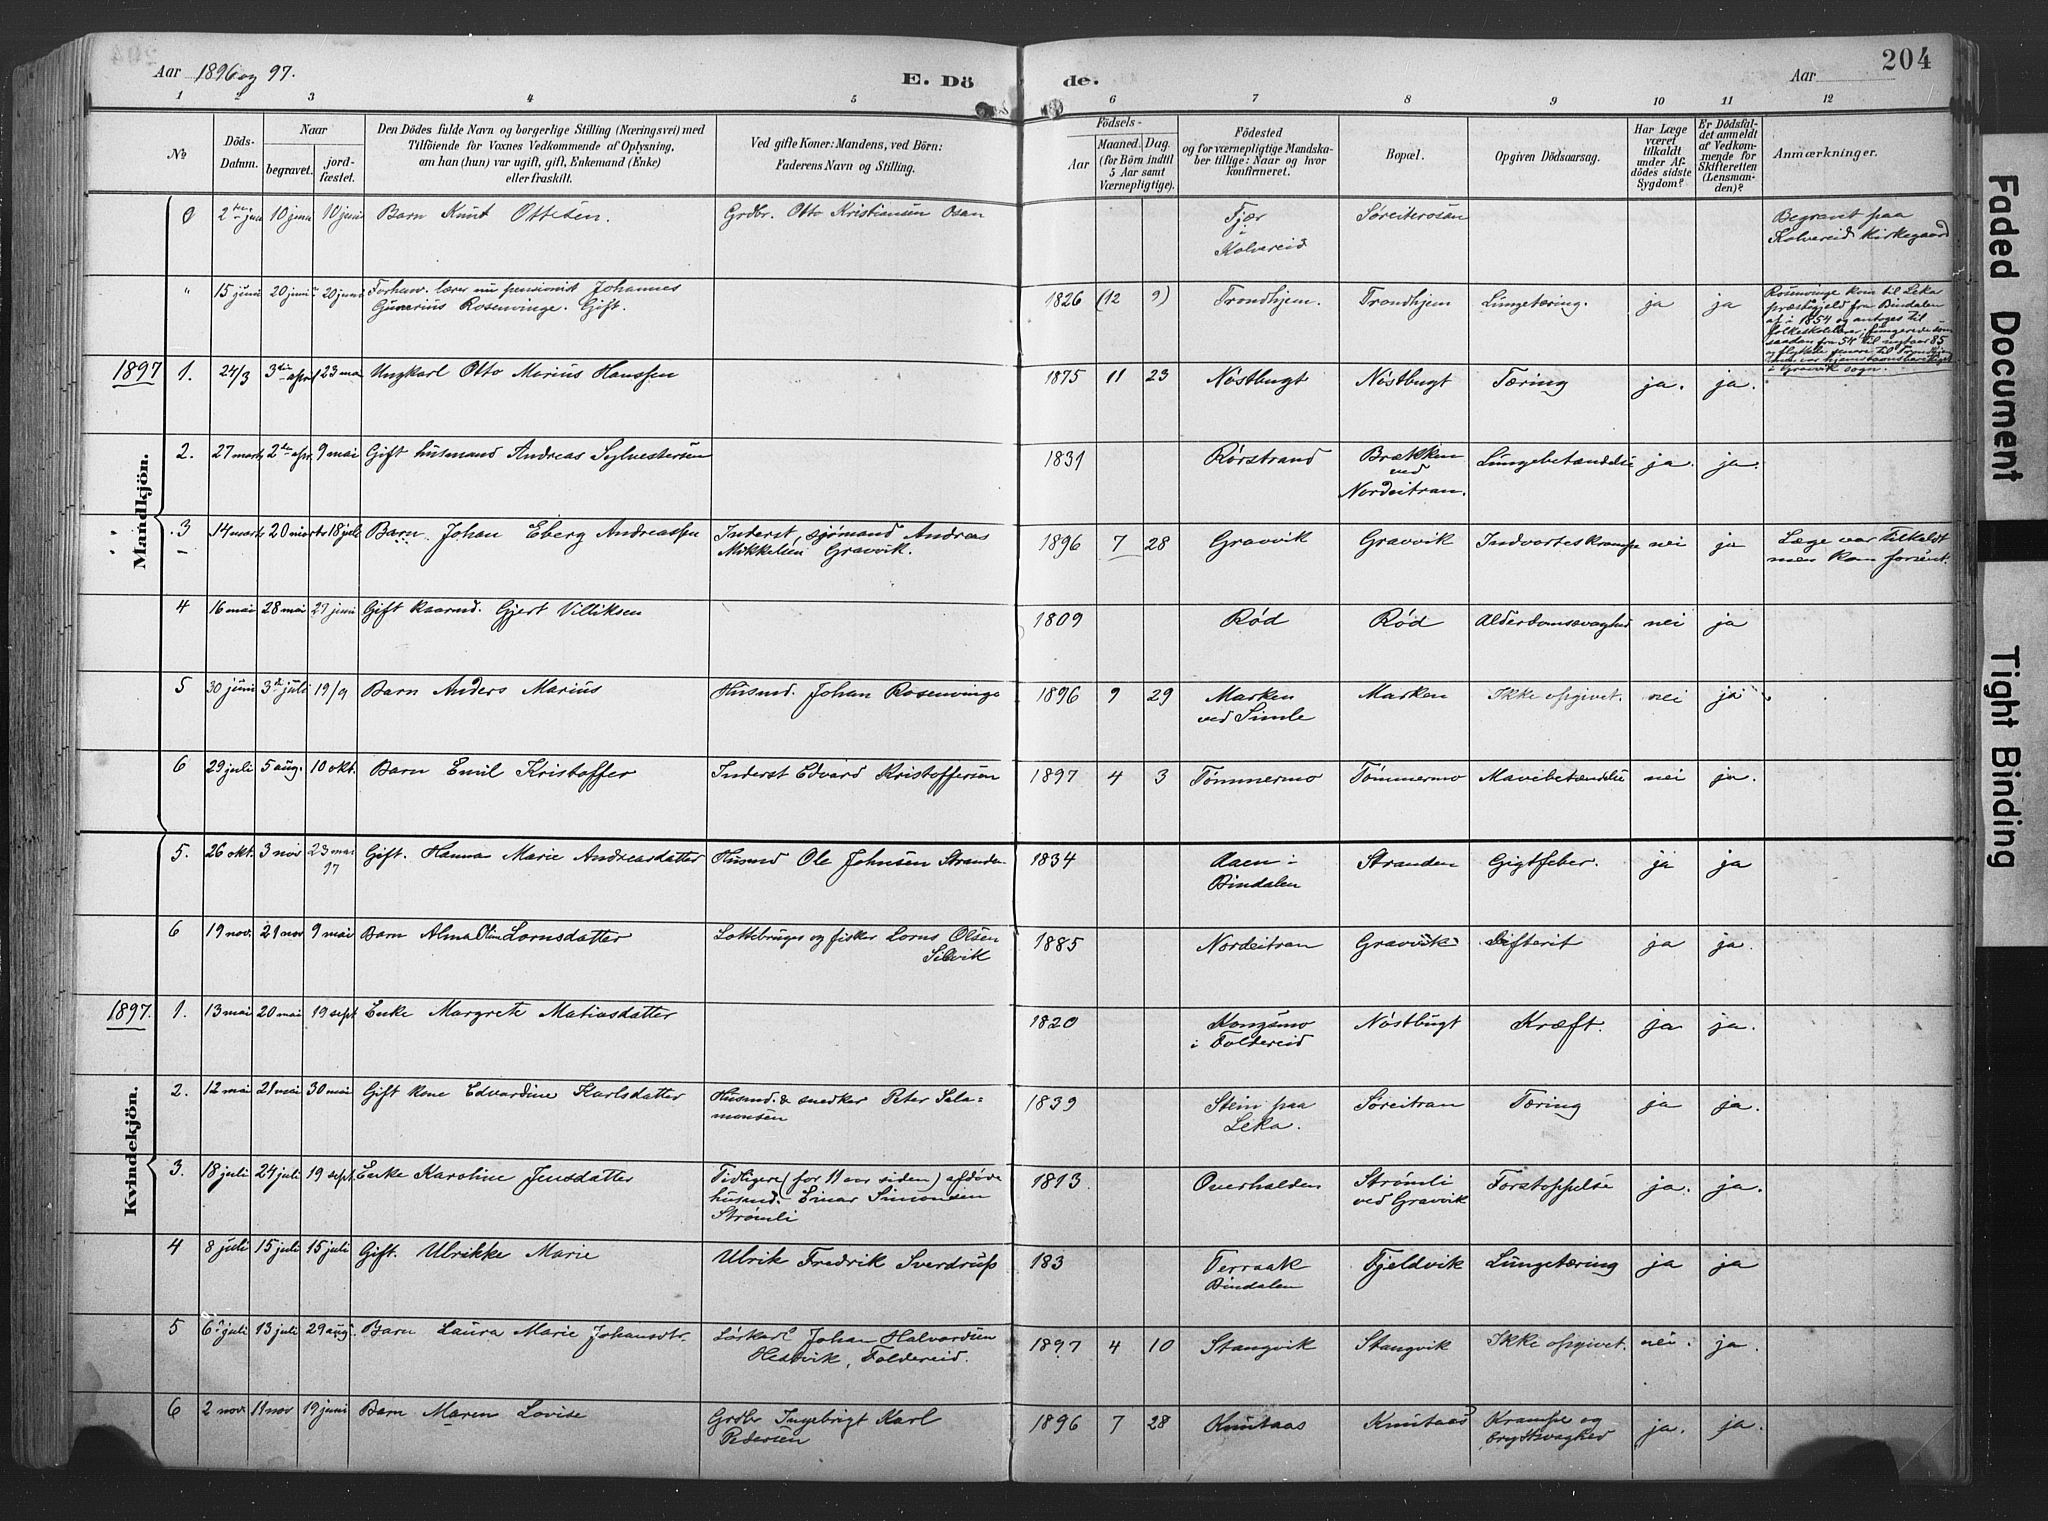 Aar 1896 og 97. E. Dö de. Aar 204
1 2 3 4 5 6 7 8 9 10 11 12
No
Döds-Datum.
Naar
begravet.
jordfæstet.
Den Dödes fulde Navn og borgerlige Stilling (Næringsvei) med
Tilföiende for Voxnes Vedkommende af Oplysning,
om han (hun) var ugift, gift, Enkemand (Enke)
eller fraskilt.
Ved gifte Koner: Mandens, ved Börn:
Faderens Navn og Stilling.
Födsels-
Aar
Maaned. Dag.
(for Börn indtil
5 Aar samt
Værnepligtige).
Födested
og for værnepligtige Mandskaber tillige: Naar og hvor
konfirmeret.
Bopæl.
Opgiven Dödsaarsag.
Har Læge
været
tilkaldt
under Afdödes sidste
Sygdom?
Er Dödsfaldet anmeldt
af Vedkommende for
Skifteretten
(Lensmanden)?
Anmærkninger.
Mandkjön.
0 2den juni 10 juni 10 juni Barn Knut Ottesen. Grdbr. Otto Kristiansen Osan Fjær i Kolvereid Søreiterosan Begravet paa Kolvereid kirkegaard
" 15 juni 20 juni 20 juni Forhenv. lærer nu pensionist Johannes Gunerius Rosenvinge. Gift. 1826 (12 9) Trondhjem. Trondhjem Lungetæring. ja ja Rosenvinge kom til Leka præstegjeld fra Bindalen i 1854 og antoges til folkeskolelærer; fungerede som saadan fra 54 til nytaar 85 i Gravvik sogn.
1897 1. 24/3 3die april 23 mai Ungkarl Otto Marius Hanssen 1875 11 23 Nøstbugt Nøstbugt Tæring ja. ja.
2. 27 marts 2den apr. 9 mai Gift husmand Andreas Sylvestersen 1831 Rørstrand Brækken ved Nordeitran. Lungebetændelse ja. ja.
3 14 marts 20 marts 18 juli Barn. Johan Eberg Andreassen Inderst, sjømand Andreas Mikkelsen Gravvik. 1896 7 28 Gravvik Gravvik Indvorteskrampe nei ja Læge var tilkaldt men kom forsent.
4 16 mai 28 mai 27 juni Gift kaarmd. Gjert Villiksen 1809 Rød Rød Alderdomssvaghed nei ja
5 30 juni 3die juli 19/9 Barn Anders Marius Husmd. Johan Rosenvinge 1896 9 29 Marken ved Simle Marken Ikke opgivet. nei ja
6 29 juli 5 aug. 10 okt. Barn Emil Kristoffer Inderst Edvard Kristoffersen 1897 4 3 Tømmermo Tømmermo Mavebetændelse nei ja.
Kvindekjön.
5. 26 okt. 3 nov 23 mai 97 Gift. Hanna Marie Andreasdatter Husmd Ole Johnsen Stranden 1834 Aaen i Bindalen Stranden Gigtfeber. ja ja
6 19 nov. 21 nov 9 mai Barn Alma Oline Lornsdatter Lottebruger og fisker Lorns Olsen Silvik 1885 Nordeitran Gravvik Difterit ja ja.
1897. 1. 13 mai 20 mai 19 sept Enke Margrete Matiasdatter 1820 Kongsmo i Foldereid Nøstbugt Kræft. ja ja.
2. 12 mai 21 mai 30 mai Gift kone Edvardine Karlsdatter Husmd. & snedker Peter Salamonsen 1839 Stein paa Leka. Søreitran Tæring ja ja.
3. 18 juli 24 juli 19 sept. Enke Karoline Jensdatter Tidligere (for 11 aar siden) afdøde husmd. Einar Simonsen Strømli 1813 Overhalden Strømli ved Gravvik Forstoppelse ja. ja.
4 8 juli 15 juli 15 juli Gift. Ulrikke Marie Ulrik Fredrik Sverdrups 183 Terraak Bindalen Fjeldvik Lungetæring ja ja
5 6 juli 13 juli 29 aug. Barn Laura Marie Johansdtr. Løskarl Johan Halvardsen Hestvik, Foldereid. 1897 4 10 Stangvik Stangvik Ikke opgivet. nei. ja.
6 2 nov. 11 nov 19 juni Barn Maren Lovise Grdbr Ingebrigt Karl Pedersen 1896 7 28 Knutaas Knutaas Krampe og brystsvaghed ja. ja.
Faded Document
Tight Binding